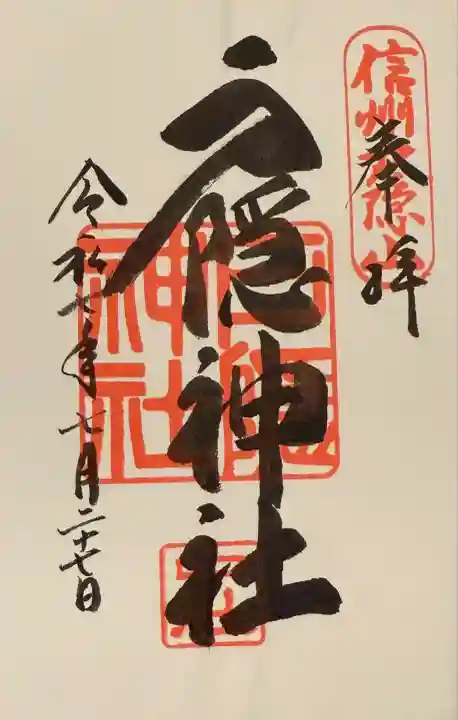 信州戸隠山
奉拝
戸隠神社
令和七年七月二十七日
戸隠神社